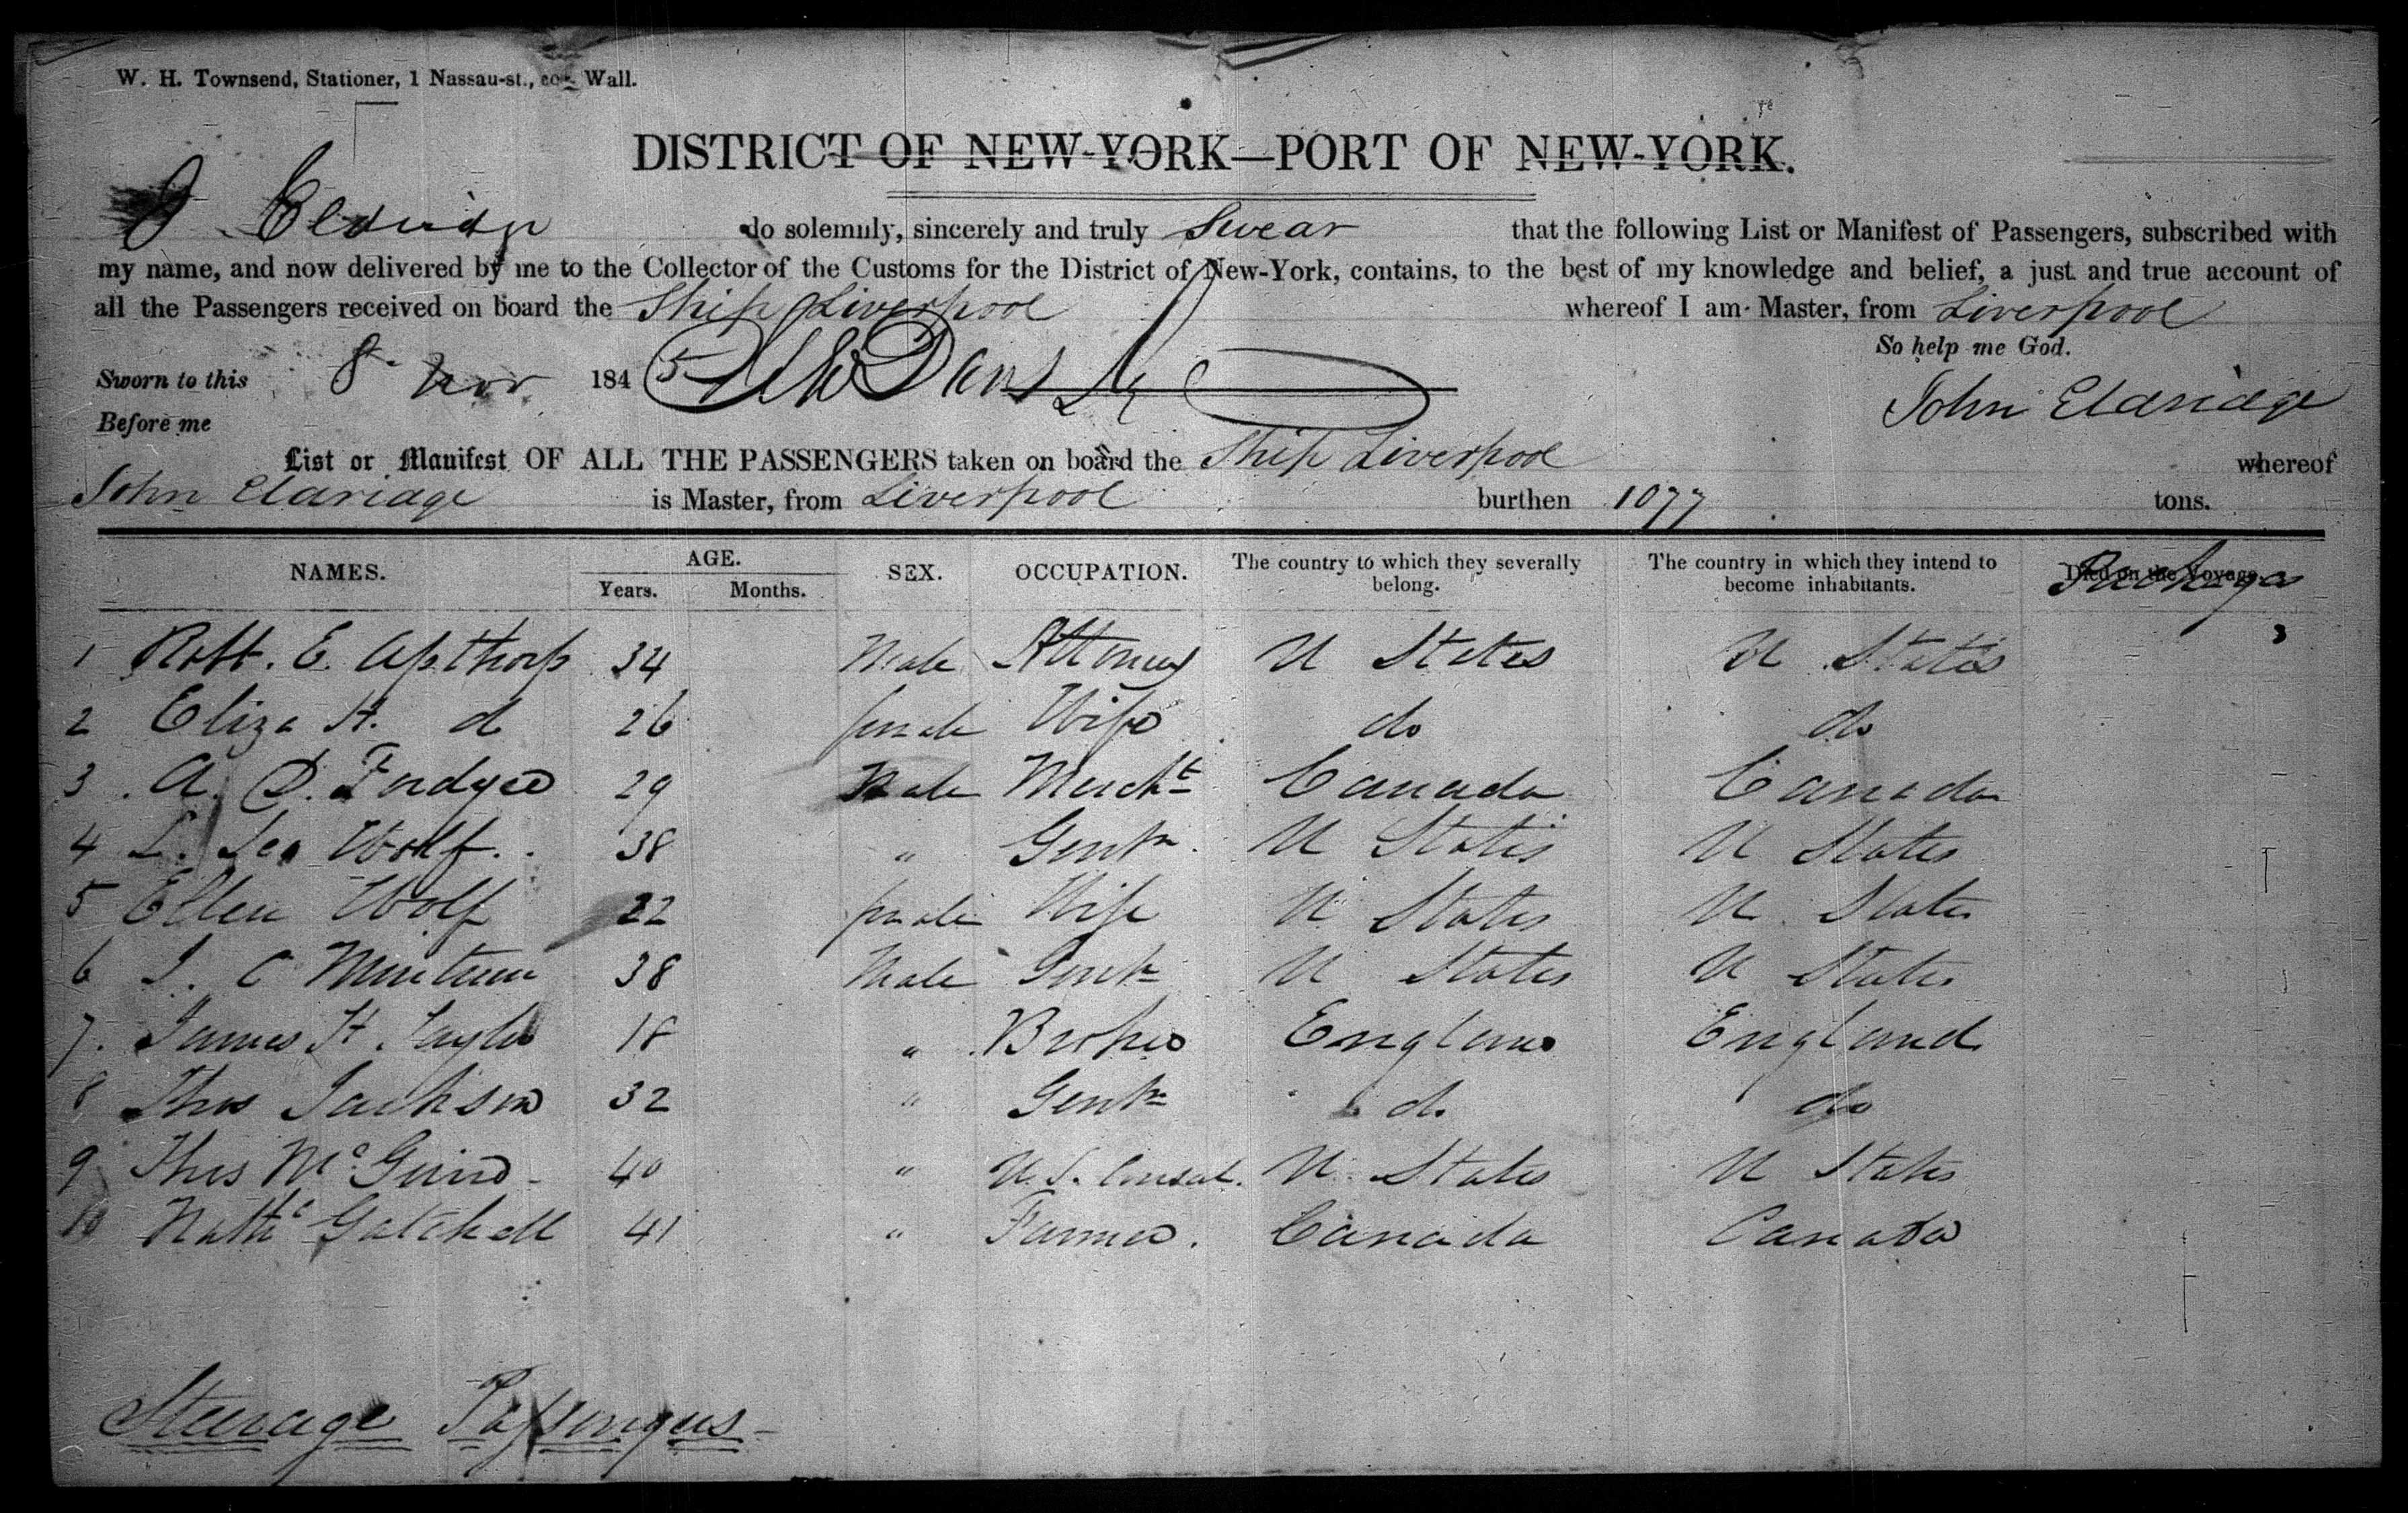 W. H. Townsend, Stationer, 1 Nassau-st., cor. Wall.
DISTRICT OF NEW-YORK—PORT OF NEW-YORK.
J Eldridge do solemnly, sincerely and truly Swear that the following List or Manifest of Passengers, subscribed with
my name, and now delivered by me to the Collector of the Customs for the District of New-York, contains, to the best of my knowledge and belief, a just and true account of
all the Passengers received on board the Ship Liverpool whereof I am Master, from Liverpool
So help me God.
Sworn to this 8 Nov 1845
John Eldridge
Before me
List or Manifest OF ALL THE PASSENGERS taken on board the Ship Liverpool whereof
John Eldridge is Master, from Liverpool burthen 1077 tons.
NAMES. AGE. Years. Months. SEX. OCCUPATION. The country to which they severally belong. The country in which they intend to become inhabitants. Died on the Voyage. Package
1 Robt. E. Apthorp 34 Male Attorney U States U States 3
2 Eliza H. d 26 female Wife do do
3 A. D. 29 Male Mercht Canada Canada
4 L. Leo Wolf. 38 " Gentn. U States U States
5 Ellen Wolf 22 female Wife U States U States
6 J. C Minturn 38 Male Gentn U States U States
7. James H. Taylor 18 " Broker England England
8 Thos Jackson 32 " Gentn do do
9 Thos McGuire 40 " U. S. Consul. U. States U States
10 Nathc Gatchell 41 " Farmer. Canada Canada
Steerage Passengers